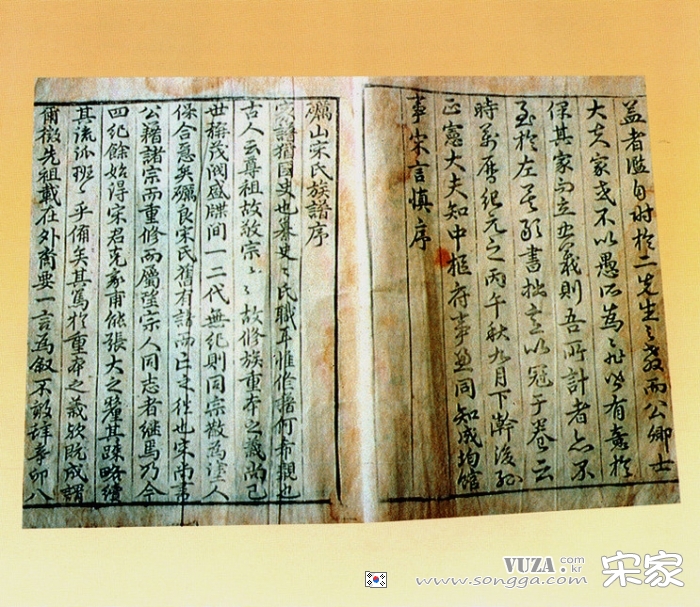 益者濫自附於二先生之教而公卿士
大夫家或不以愚所為〻非皆有意於
保其家而立其義則吾所計者亦不
至於左矣敬書拙言以冠于卷云
時萬曆紀元之丙午秋九月下澣後孫
正憲大夫知中樞府事兼同知成均館
事宋言慎序
礪山宋氏族譜序
家譜猶國史也史〻氏職耳惟脩譜何希覯也
古人云尊祖故敬宗〻〻故修族重本之義尚已
世稱茂閥盛牒間一二代無紀則同宗散為塗人
保合矣礪良宋氏舊有譜而亡之往也宋尚書
公籍諸宗而重修而屬望宗人同志者继焉乃今
四紀餘始得宋君克家甫能張大之釐其踈略續
其流派班〻乎備矣其篤於重本之義欤既成謂
爾徵先祖載在外裔要一言為叙不敢辞
VUZA.com.kr
www.songga.com 宋家